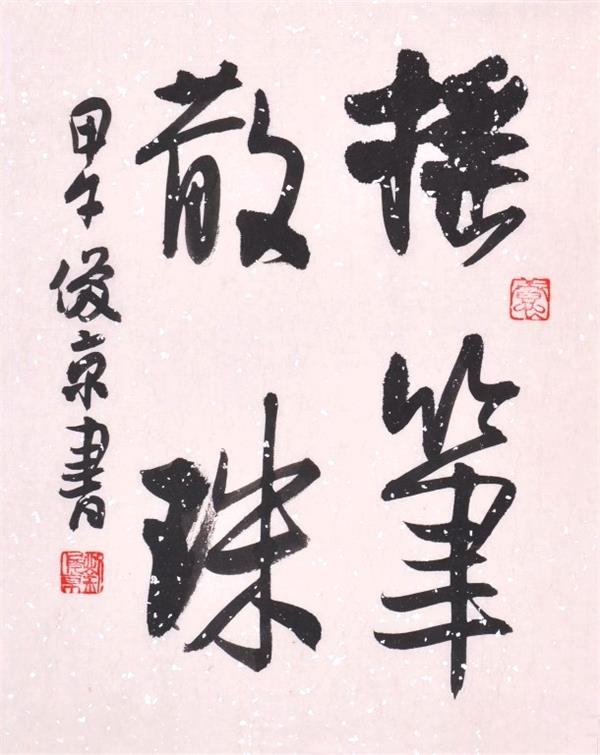 摇筆
散珠
甲午俊京書